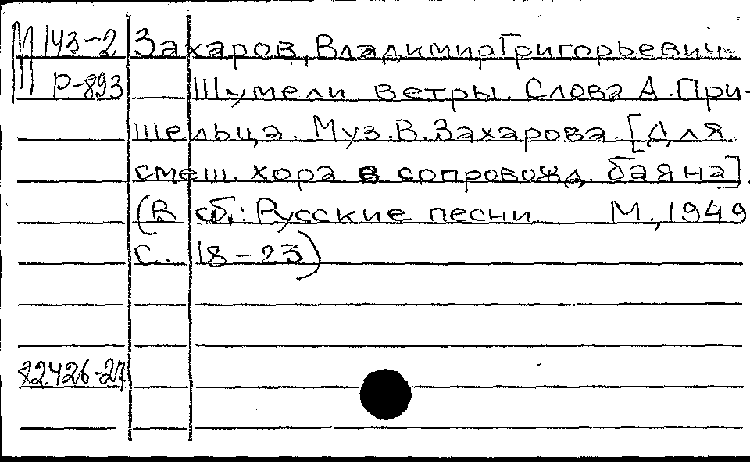 М 143-2 Захаров, Владимир Григорьевич.
Р-893 Шумели ветры. Слова А. При-
шельца. Муз. В. Захарова. [Для
смеш. хора в сопровожд. баяна].
(В сб.: Русские песни М., 1949
С. 18-23)
82426-27